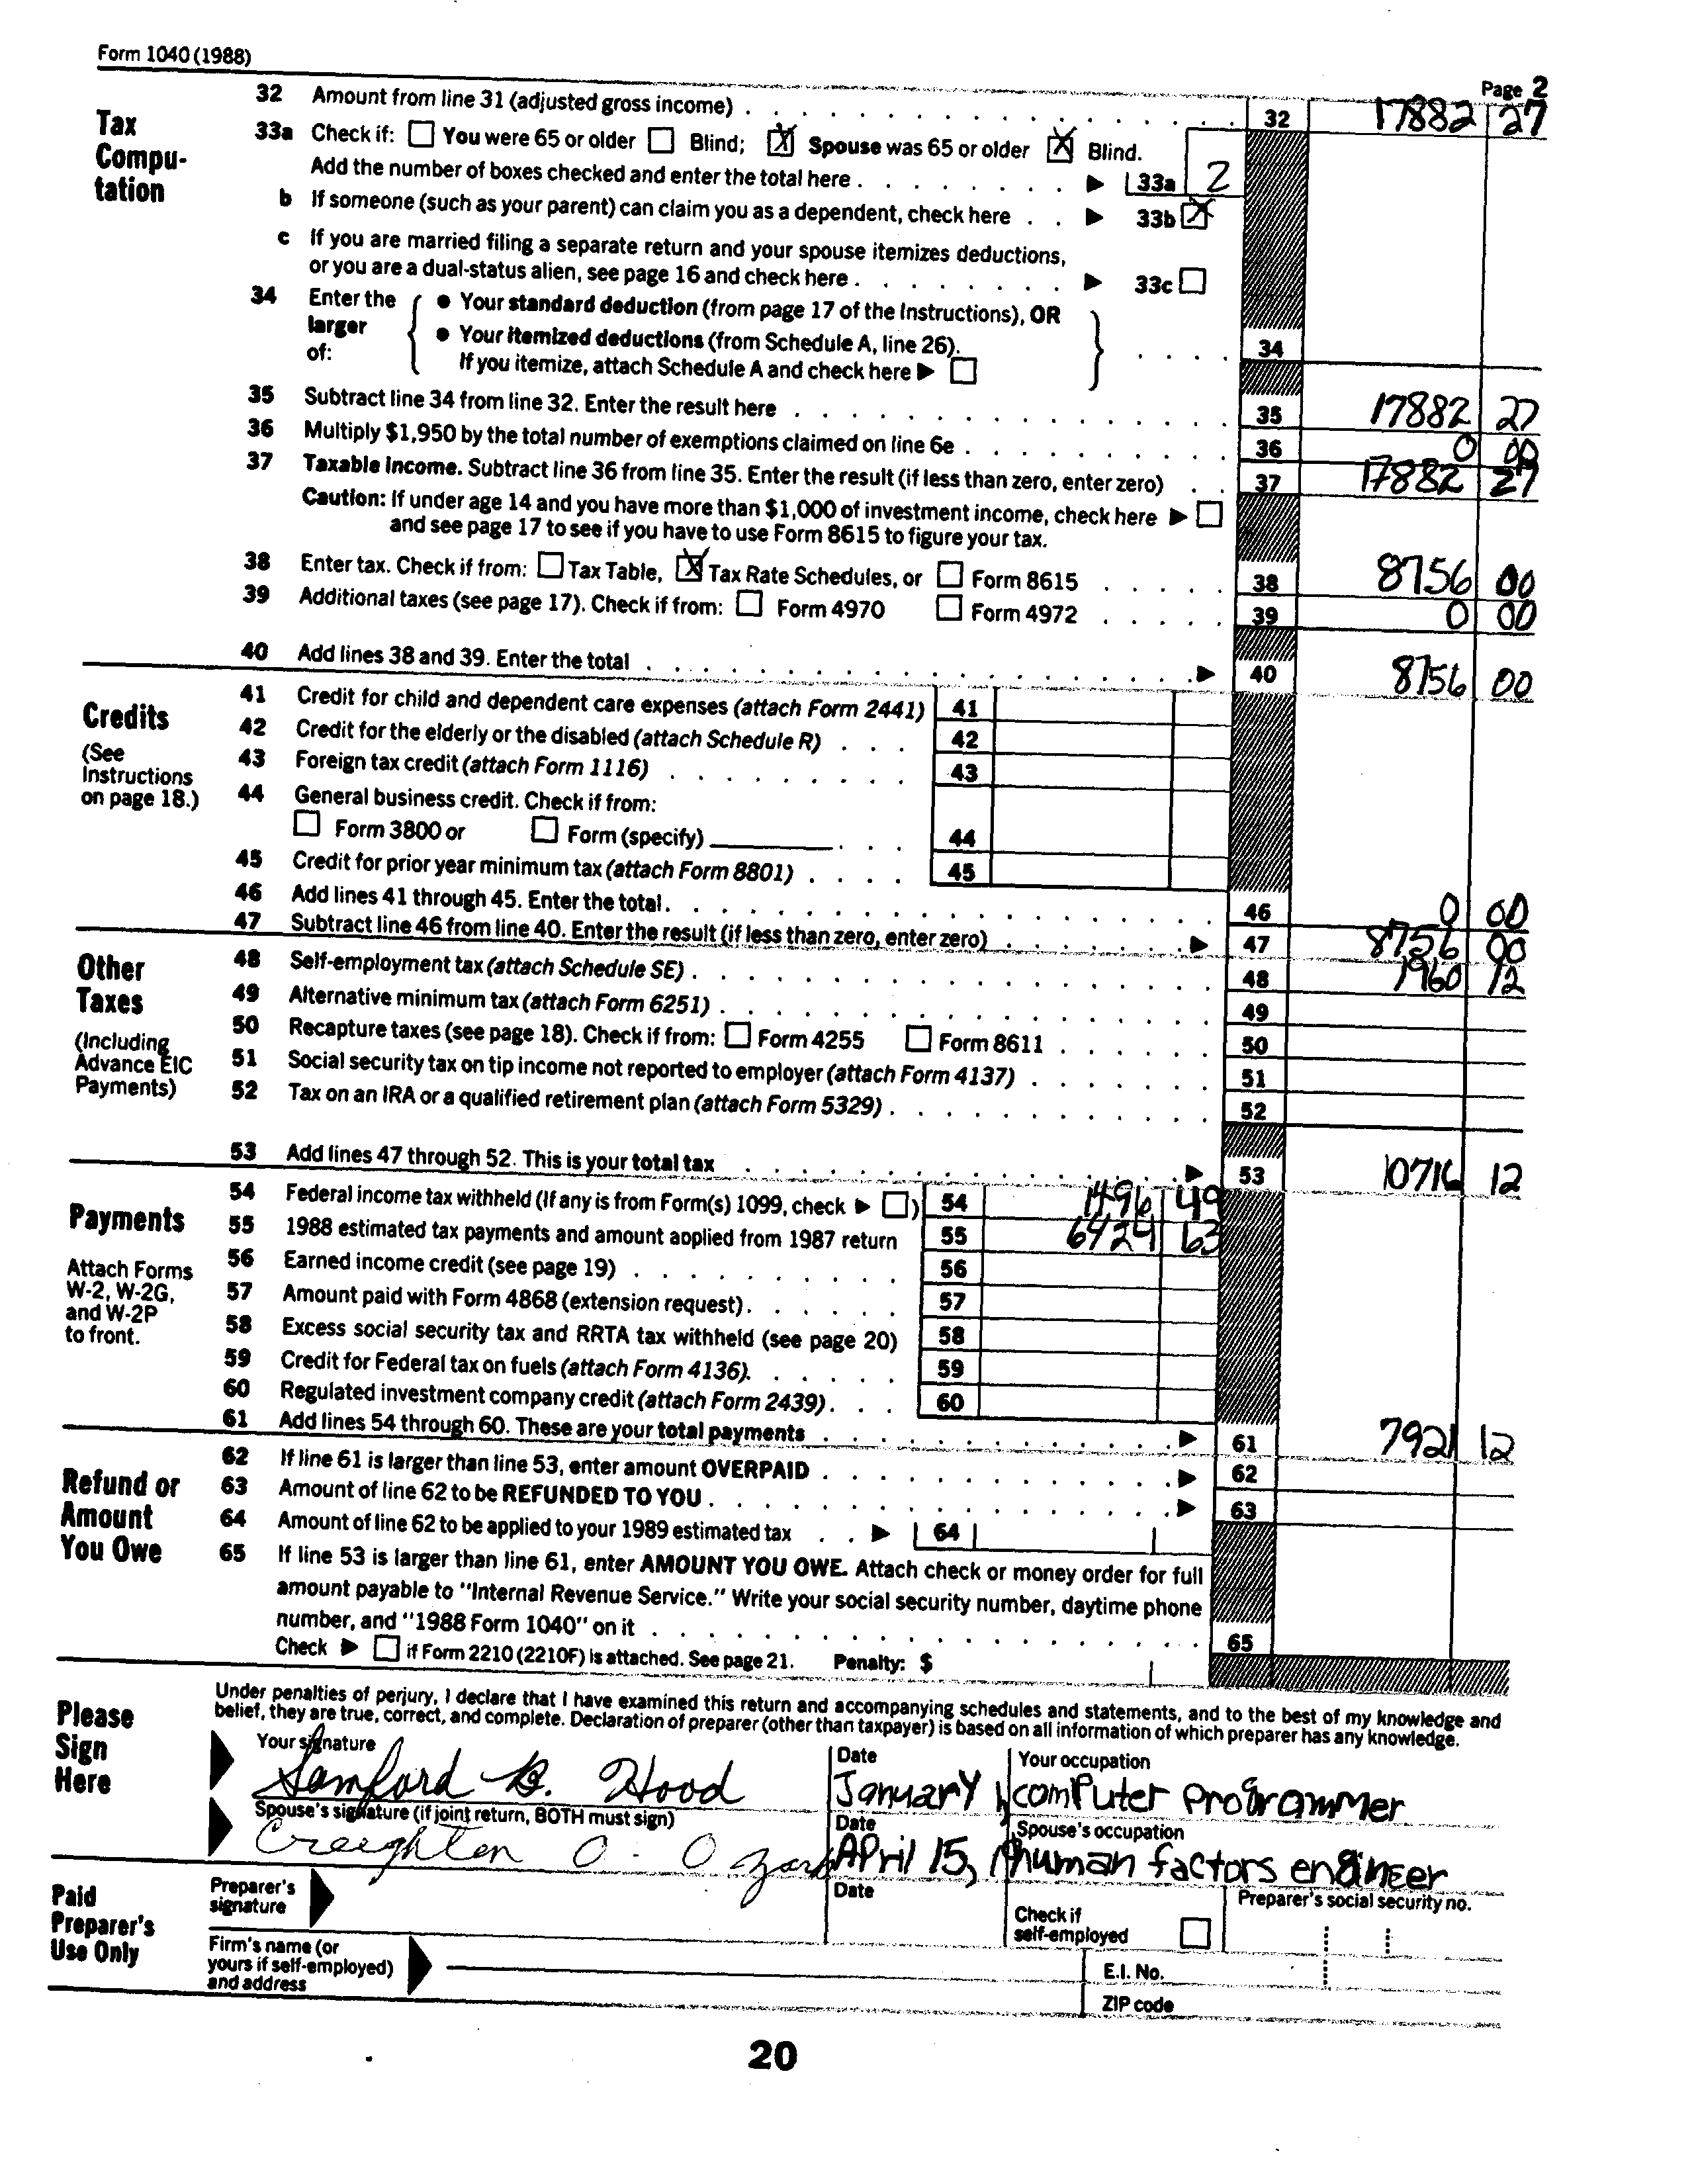 Form 1040 (1988)
Page 2
Tax Compu-tation
32 Amount from line 31 (adjusted gross income) . . . 32 17882 27
33a Check if: You were 65 or older Blind; X Spouse was 65 or older X Blind.
Add the number of boxes checked and enter the total here . . . 33a 2
b If someone (such as your parent) can claim you as a dependent, check here . . 33b X
c If you are married filing a separate return and your spouse itemizes deductions,
or you are a dual-status alien, see page 16 and check here . . . 33c
34 Enter the larger of:
• Your standard deduction (from page 17 of the Instructions), OR
• Your itemized deductions (from Schedule A, line 26).
If you itemize, attach Schedule A and check here . . . 34
35 Subtract line 34 from line 32. Enter the result here . . . 35 17882 27
36 Multiply $1,950 by the total number of exemptions claimed on line 6e . . . 36 0 00
37 Taxable income. Subtract line 36 from line 35. Enter the result (if less than zero, enter zero) . . 37 17882 27
Caution: If under age 14 and you have more than $1,000 of investment income, check here
and see page 17 to see if you have to use Form 8615 to figure your tax.
38 Enter tax. Check if from: Tax Table, X Tax Rate Schedules, or Form 8615 . . . 38 8756 00
39 Additional taxes (see page 17). Check if from: Form 4970 Form 4972 . . . 39 0 00
40 Add lines 38 and 39. Enter the total . . . 40 8756 00
Credits
(See Instructions on page 18.)
41 Credit for child and dependent care expenses (attach Form 2441) 41
42 Credit for the elderly or the disabled (attach Schedule R) . . . 42
43 Foreign tax credit (attach Form 1116) . . . 43
44 General business credit. Check if from:
Form 3800 or Form (specify) . . . 44
45 Credit for prior year minimum tax (attach Form 8801) . . . 45
46 Add lines 41 through 45. Enter the total . . . 46 0 00
47 Subtract line 46 from line 40. Enter the result (if less than zero, enter zero) . . . 47 8756 00
Other Taxes
(Including Advance EIC Payments)
48 Self-employment tax (attach Schedule SE) . . . 48 1960 12
49 Alternative minimum tax (attach Form 6251) . . . 49
50 Recapture taxes (see page 18). Check if from: Form 4255 Form 8611 . . . 50
51 Social security tax on tip income not reported to employer (attach Form 4137) . . . 51
52 Tax on an IRA or a qualified retirement plan (attach Form 5329) . . . 52
53 Add lines 47 through 52. This is your total tax . . . 53 10716 12
Payments
Attach Forms W-2, W-2G, and W-2P to front.
54 Federal income tax withheld (If any is from Form(s) 1099, check ) 54 1496 49
55 1988 estimated tax payments and amount applied from 1987 return 55 6424 63
56 Earned income credit (see page 19) . . . 56
57 Amount paid with Form 4868 (extension request) . . . 57
58 Excess social security tax and RRTA tax withheld (see page 20) 58
59 Credit for Federal tax on fuels (attach Form 4136) . . . 59
60 Regulated investment company credit (attach Form 2439) . . . 60
61 Add lines 54 through 60. These are your total payments . . . 61 7921 12
Refund or Amount You Owe
62 If line 61 is larger than line 53, enter amount OVERPAID . . . 62
63 Amount of line 62 to be REFUNDED TO YOU . . . 63
64 Amount of line 62 to be applied to your 1989 estimated tax . . 64
65 If line 53 is larger than line 61, enter AMOUNT YOU OWE. Attach check or money order for full
amount payable to "Internal Revenue Service." Write your social security number, daytime phone
number, and "1988 Form 1040" on it . . . 65
Check if Form 2210 (2210F) is attached. See page 21. Penalty: $
Please Sign Here
Under penalties of perjury, I declare that I have examined this return and accompanying schedules and statements, and to the best of my knowledge and
belief, they are true, correct, and complete. Declaration of preparer (other than taxpayer) is based on all information of which preparer has any knowledge.
Your signature Date Your occupation
Samford B. Hood January 1, computer programmer
Spouse's signature (if joint return, BOTH must sign) Date Spouse's occupation
Creighton O. Ozark April 15, human factors engineer
Paid Preparer's Use Only
Preparer's signature Date Check if self-employed Preparer's social security no.
Firm's name (or yours if self-employed) and address
E.I. No.
ZIP code
20